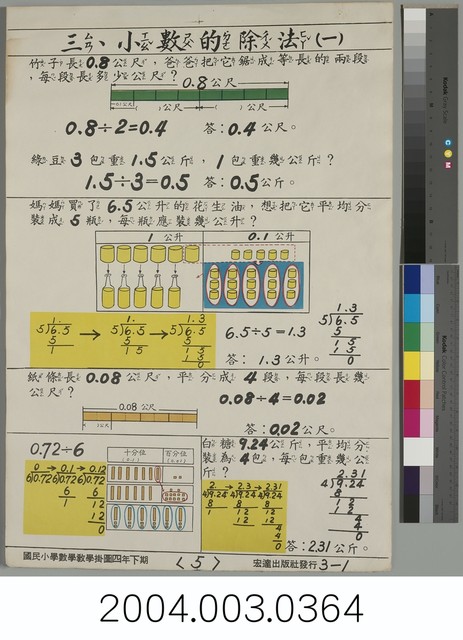 三、小數的除法(一)
竹子長0.8公尺,爸爸把它鋸成等長的兩段
,每段長多少公尺?
0.8公尺
( )公尺 ( )公尺
0.8÷2=0.4 答:0.4公尺。
綠豆3包重1.5公斤,1包重幾公斤?
1.5÷3=0.5 答:0.5公斤。
媽媽買了6.5公升的花生油,想把它平均分
裝成5瓶,每瓶應裝幾公升?
1公升 0.1公升
6.5÷5=1.3
答:1.3公升。
紙條長0.08公尺,平分成4段,每段長幾
公尺?
0.08÷4=0.02
0.08公尺
答:0.02公尺
0.72÷6
十分位 百分位
白糖9.24公斤,平均分
裝為4包,每包重幾公
斤?
答:2.31公斤。
國民小學數學教學掛圖四年下期
〈5〉
宏瀍出版社發行3-1
2004.003.0364